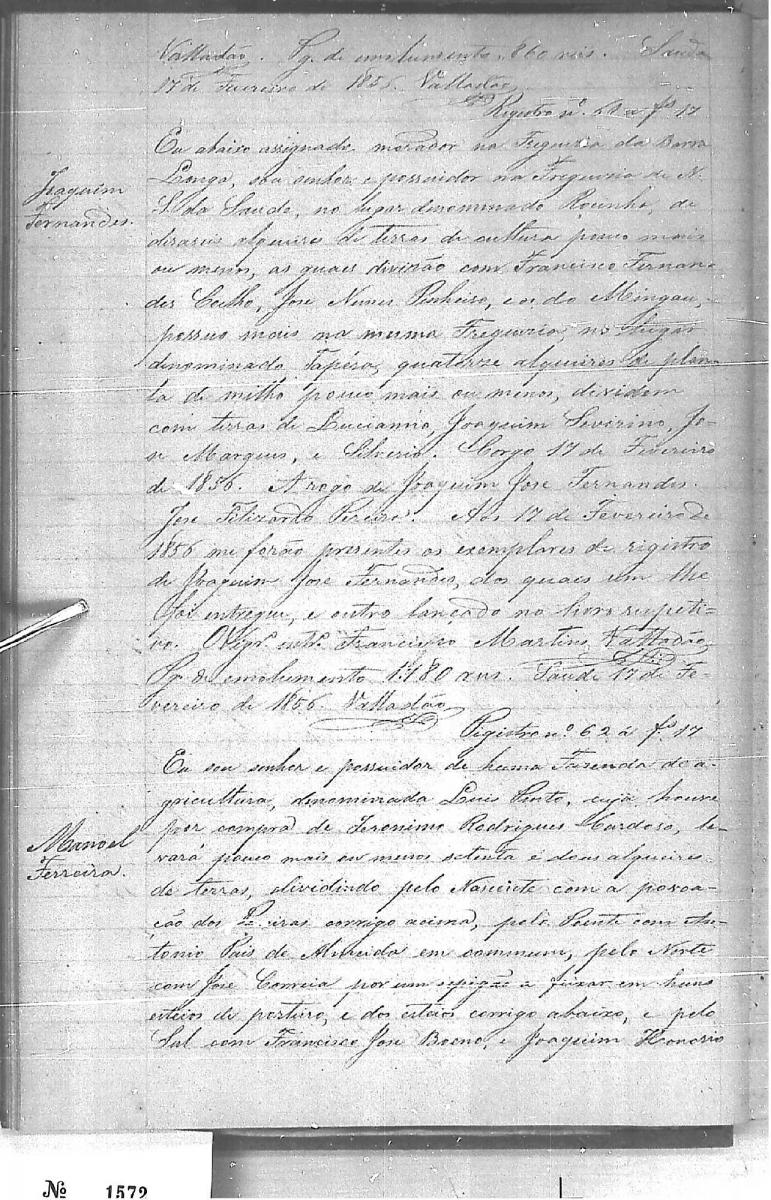 Valladão. Pg. de emolumento 860 reis. Saude
17 de Fevereiro de 1856. Valladão
Registro nº 61 a fs 17
Joaquim
Fernandes.
Eu abaixo assignado morador na Freguezia da Barra
Longa, sou senhor e possuidor na Freguezia de N.
S. da Saude, no lugar denominado Rocinha, de
diraseis alqueires de terras de cultura pouco mais
ou menos, as quaes divisão com Francisco Fernan-
des Coelho, Jose Nunes Pinheiro, e os do Mingau,
possuo mais na mesma Freguezia, no lugar
denominado Tapéra, quatorze alqueires de plan-
ta de milho pouco mais ou menos, dividem
com terras de Joaquim Severino, Jo-
se Marques, e Silverio. Corgo 17 de Fevereiro
de 1856. A rogo de Joaquim Jose Fernandes.
Jose Felizardo Pereira. Aos 17 de Fevereiro de
1856 me forão presentes os exemplares de registro
de Joaquim Jose Fernandes, dos quaes um lhe
foi entregue, e outro lançado no livro respeti-
vo. O Vigrº Francisco Martins Valladão
Pg. de emolumento 1:180 reis. Saude 17 de Fe-
vereiro de 1856. Valladão
Registro nº 62 á fs 17
Manoel
Ferreira.
Eu sou senhor e possuidor de huma Fazenda de a-
gricultura, denominada Luis Pinto, cuja houve
por compra de Jeronimo Rodrigues Cardoso, le-
vará pouco mais ou menos setenta e dous alqueires
de terras, dividindo pelo Nascente com a povoa-
ção dos corrigo acima, pelo Poente com An-
tonio Pais de Almeida em commum, pelo Norte
com Jose Correia por um espigão a fixar em huns
esteios de porteiro, e dos esteios corrigo abaixo, e pelo
Sul com Francisco Jose Boeno, e Joaquim Honorio
Nº 1572